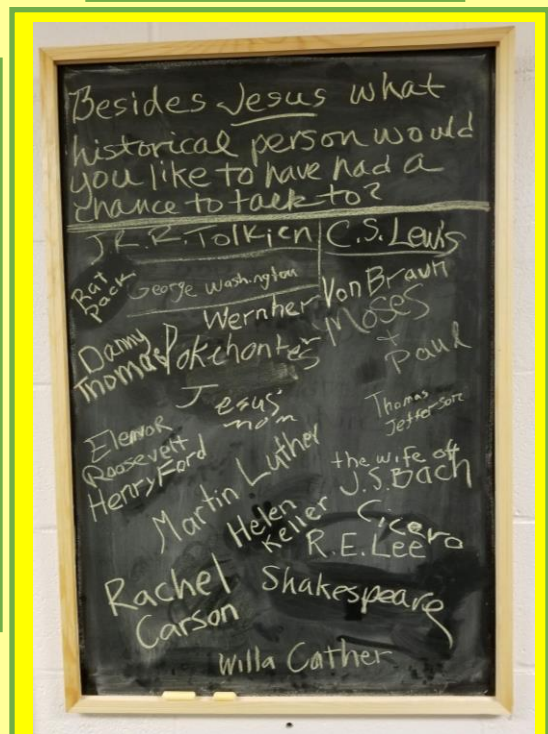 Besides Jesus what
historical person would
you like to have had a
chance to talk to?
J.R.R. Tolkien
C.S. Lewis
Rat
Pack
George Washington
Wernher Von Braun
Danny
Thomas
Pokehontes
Moses
+
Paul
Jesus'
mom
Thomas
Jefferson
Elenor
Roosevelt
Henry Ford
Martin Luther
the wife off
J.S. Bach
Helen
Keller
Cicero
R.E. Lee
Rachel
Carson
Shakespeare
Willa Cather